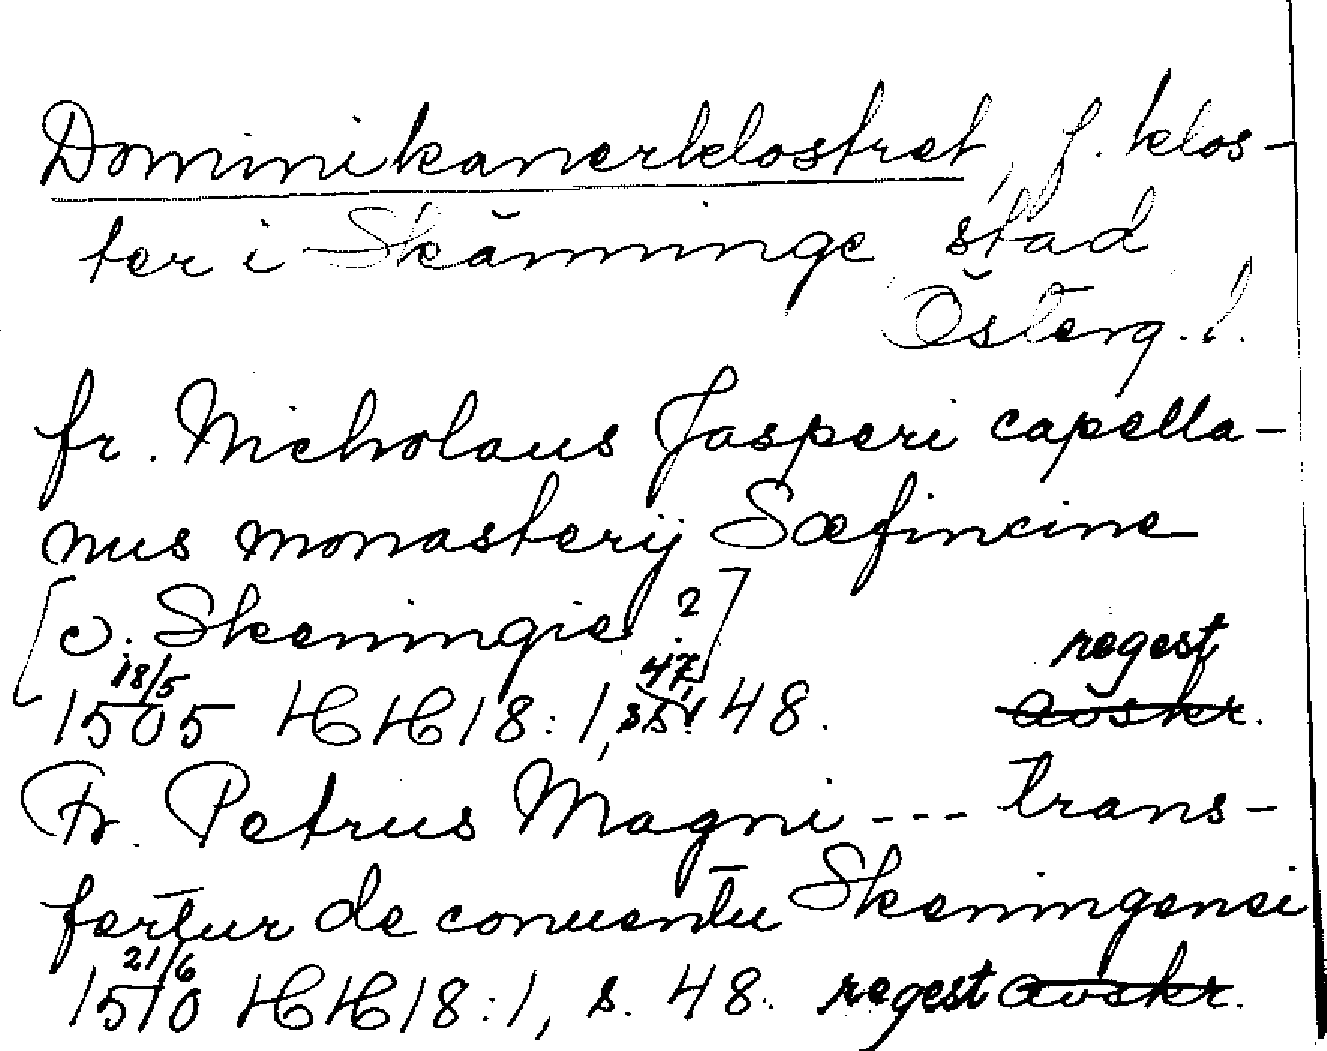 Dominikanerklostret, f. klos-
ter i Skänninge stad
Österg. l.
fr. Nicholaus Jasperi capella-
nus monasterij Sæfincine
[o: Skeningie?]
18/5 47,
1505 HH 18:1, s. 48. regest avskr.
Fr. Petrus Magni --- trans-
fertur de conuentu Skeningensi
21/6
1510 HH 18:1, s. 48. regest avskr.